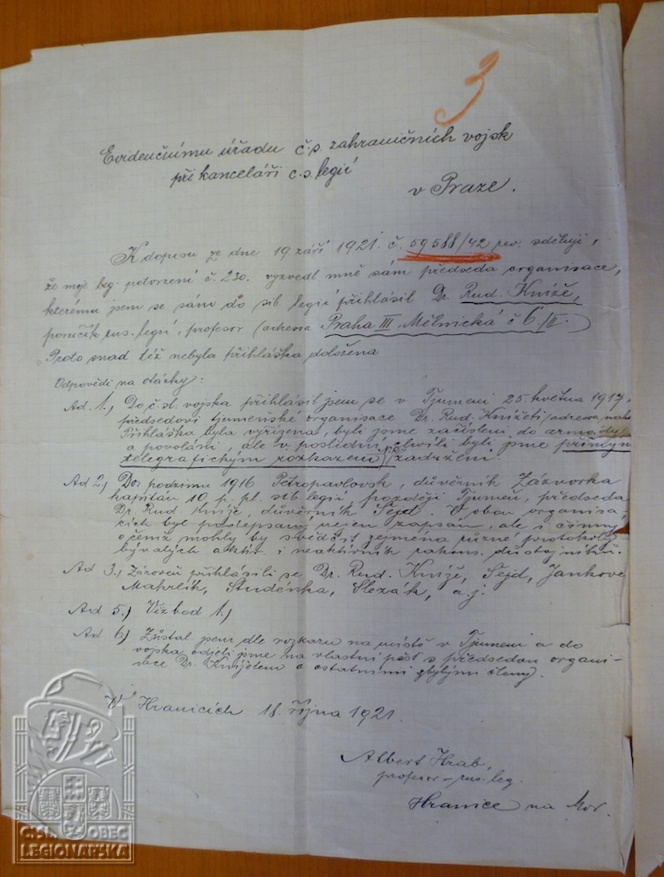 3
Evidenčnímu úřadu č.s. zahraničních vojsk
při kanceláři č.s. legií
v Praze.
K dopisu ze dne 19 září 1921 č. 59588/42 sděluji,
že moj leg. potvrzení č. 230. vyzvedl mně sám předseda organisace,
kterému jsem se sám do sib. legií přihlásil Dr. Rud. Kníže,
poručík rus. legií, profesor adresa Praha III. Mělnická č 6/II.
Proto snad též nebyla přihláška doložena
Odpovědi na otázky:
Ad 1.) Do č.sl. vojska přihlásil jsem se v Tjumeni 25 května 1917
předsedovi tjumeňské organisace Dr. Rud. Knížeti/adresa
Přihláška byla vyřízena, byli jsme začísleni do
a povolání, ale v poslední chvíli byli jsme
telegrafickým rozkazem zadrženi.
Ad 2.) Do podzimu 1916 Petropavlovsk, důvěrník Závorka
kapitán 10 p. pl. sib legií, později Tjumeň, předseda
Dr Rud Kníže, důvěrník Sejd. V obou organisa-
cích byl podepsaný nejen zapsán, ale i činný
o čemž mohly by svědčit zejména různé protokoly
bývalých aktit i neaktivních rakous. důstojníků.
Ad 3.) Zároveň přihlásili se Dr. Rud. Kníže, Sejd, Jankove
Mahrlík, Studénka, Slezák, a.j.
Ad 5.) Viz bod 1.)
Ad 6) Zůstal jsem dle rozkazu na místě v Tjumeni a do
vojska odjeli jsme na vlastní pěst s předsedou organi-
sace Dr. Knížetem a ostatními zbylými členy.
V Hranicích 18. října 1921.
Albert Hrab,
profesor – rus. leg.
Hranice na Mor.
ČS. OBEC
LEGIONÁŘSKÁ